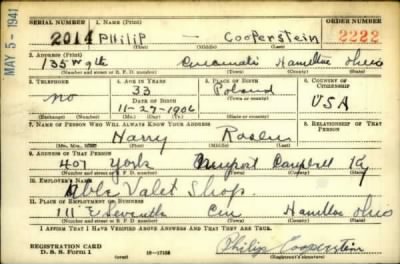 MAY 5 - 1941
SERIAL NUMBER 1. NAME (Print) ORDER NUMBER
2014 Philip — Cooperstein 2222
(First) (Middle) (Last)
2. ADDRESS (Print)
135 W 9th Cincinnati Hamilton Ohio
(Number and street or R. F. D. number) (Town) (County) (State)
3. TELEPHONE 4. AGE IN YEARS 5. PLACE OF BIRTH 6. COUNTRY OF CITIZENSHIP
33 Poland
no DATE OF BIRTH (Town or county) USA
11-27-1906
(Exchange) (Number) (Mo.) (Day) (Yr.) (State or country)
7. NAME OF PERSON WHO WILL ALWAYS KNOW YOUR ADDRESS 8. RELATIONSHIP OF THAT PERSON
Harry
(Mr., Mrs., Miss) (First) (Middle) (Last)
9. ADDRESS OF THAT PERSON
407 York Newport Campbell Ky
(Number and street or R. F. D. number) (Town) (County) (State)
10. EMPLOYER'S NAME
Able Valet Shop.
11. PLACE OF EMPLOYMENT OR BUSINESS
111 E Seventh Cin Hamilton Ohio
(Number and street or R. F. D. number) (Town) (County) (State)
I AFFIRM THAT I HAVE VERIFIED ABOVE ANSWERS AND THAT THEY ARE TRUE.
REGISTRATION CARD
D. S. S. Form 1 16—17105 Philip Cooperstein
(over) (Registrant's signature)